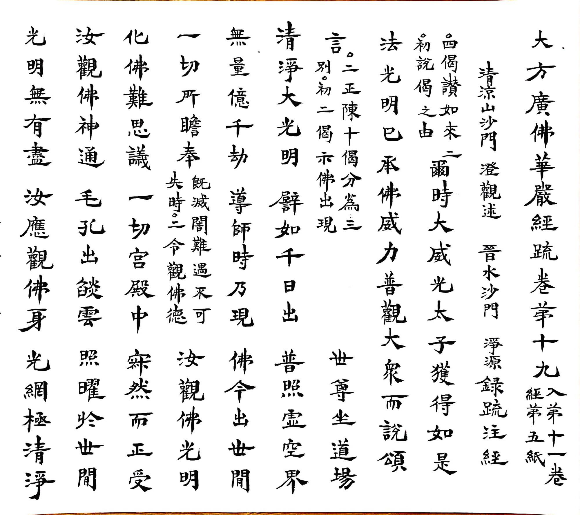 大方廣佛華嚴經疏卷第十九入第十一卷經第五紙
清涼山沙門 澄觀述 晉水沙門 淨源錄疏注經
。四偈讚如來二。初說偈之由爾時大威光太子獲得如是
法光明已承佛威力普觀大衆而說頌
言。二正陳十偈分為三別。初二偈示佛出現 世尊坐道場
清淨大光明 譬如千日出 普照虛空界
無量億千劫 導師時乃現 佛今出世間
一切所瞻奉既滅闇難遇不可失時。二令觀佛德 汝觀佛光明
化佛難思議 一切宮殿中 寂然而正受
汝觀佛神通 毛孔出燄雲 照曜於世間
光明無有盡 汝應觀佛身 光網極清淨